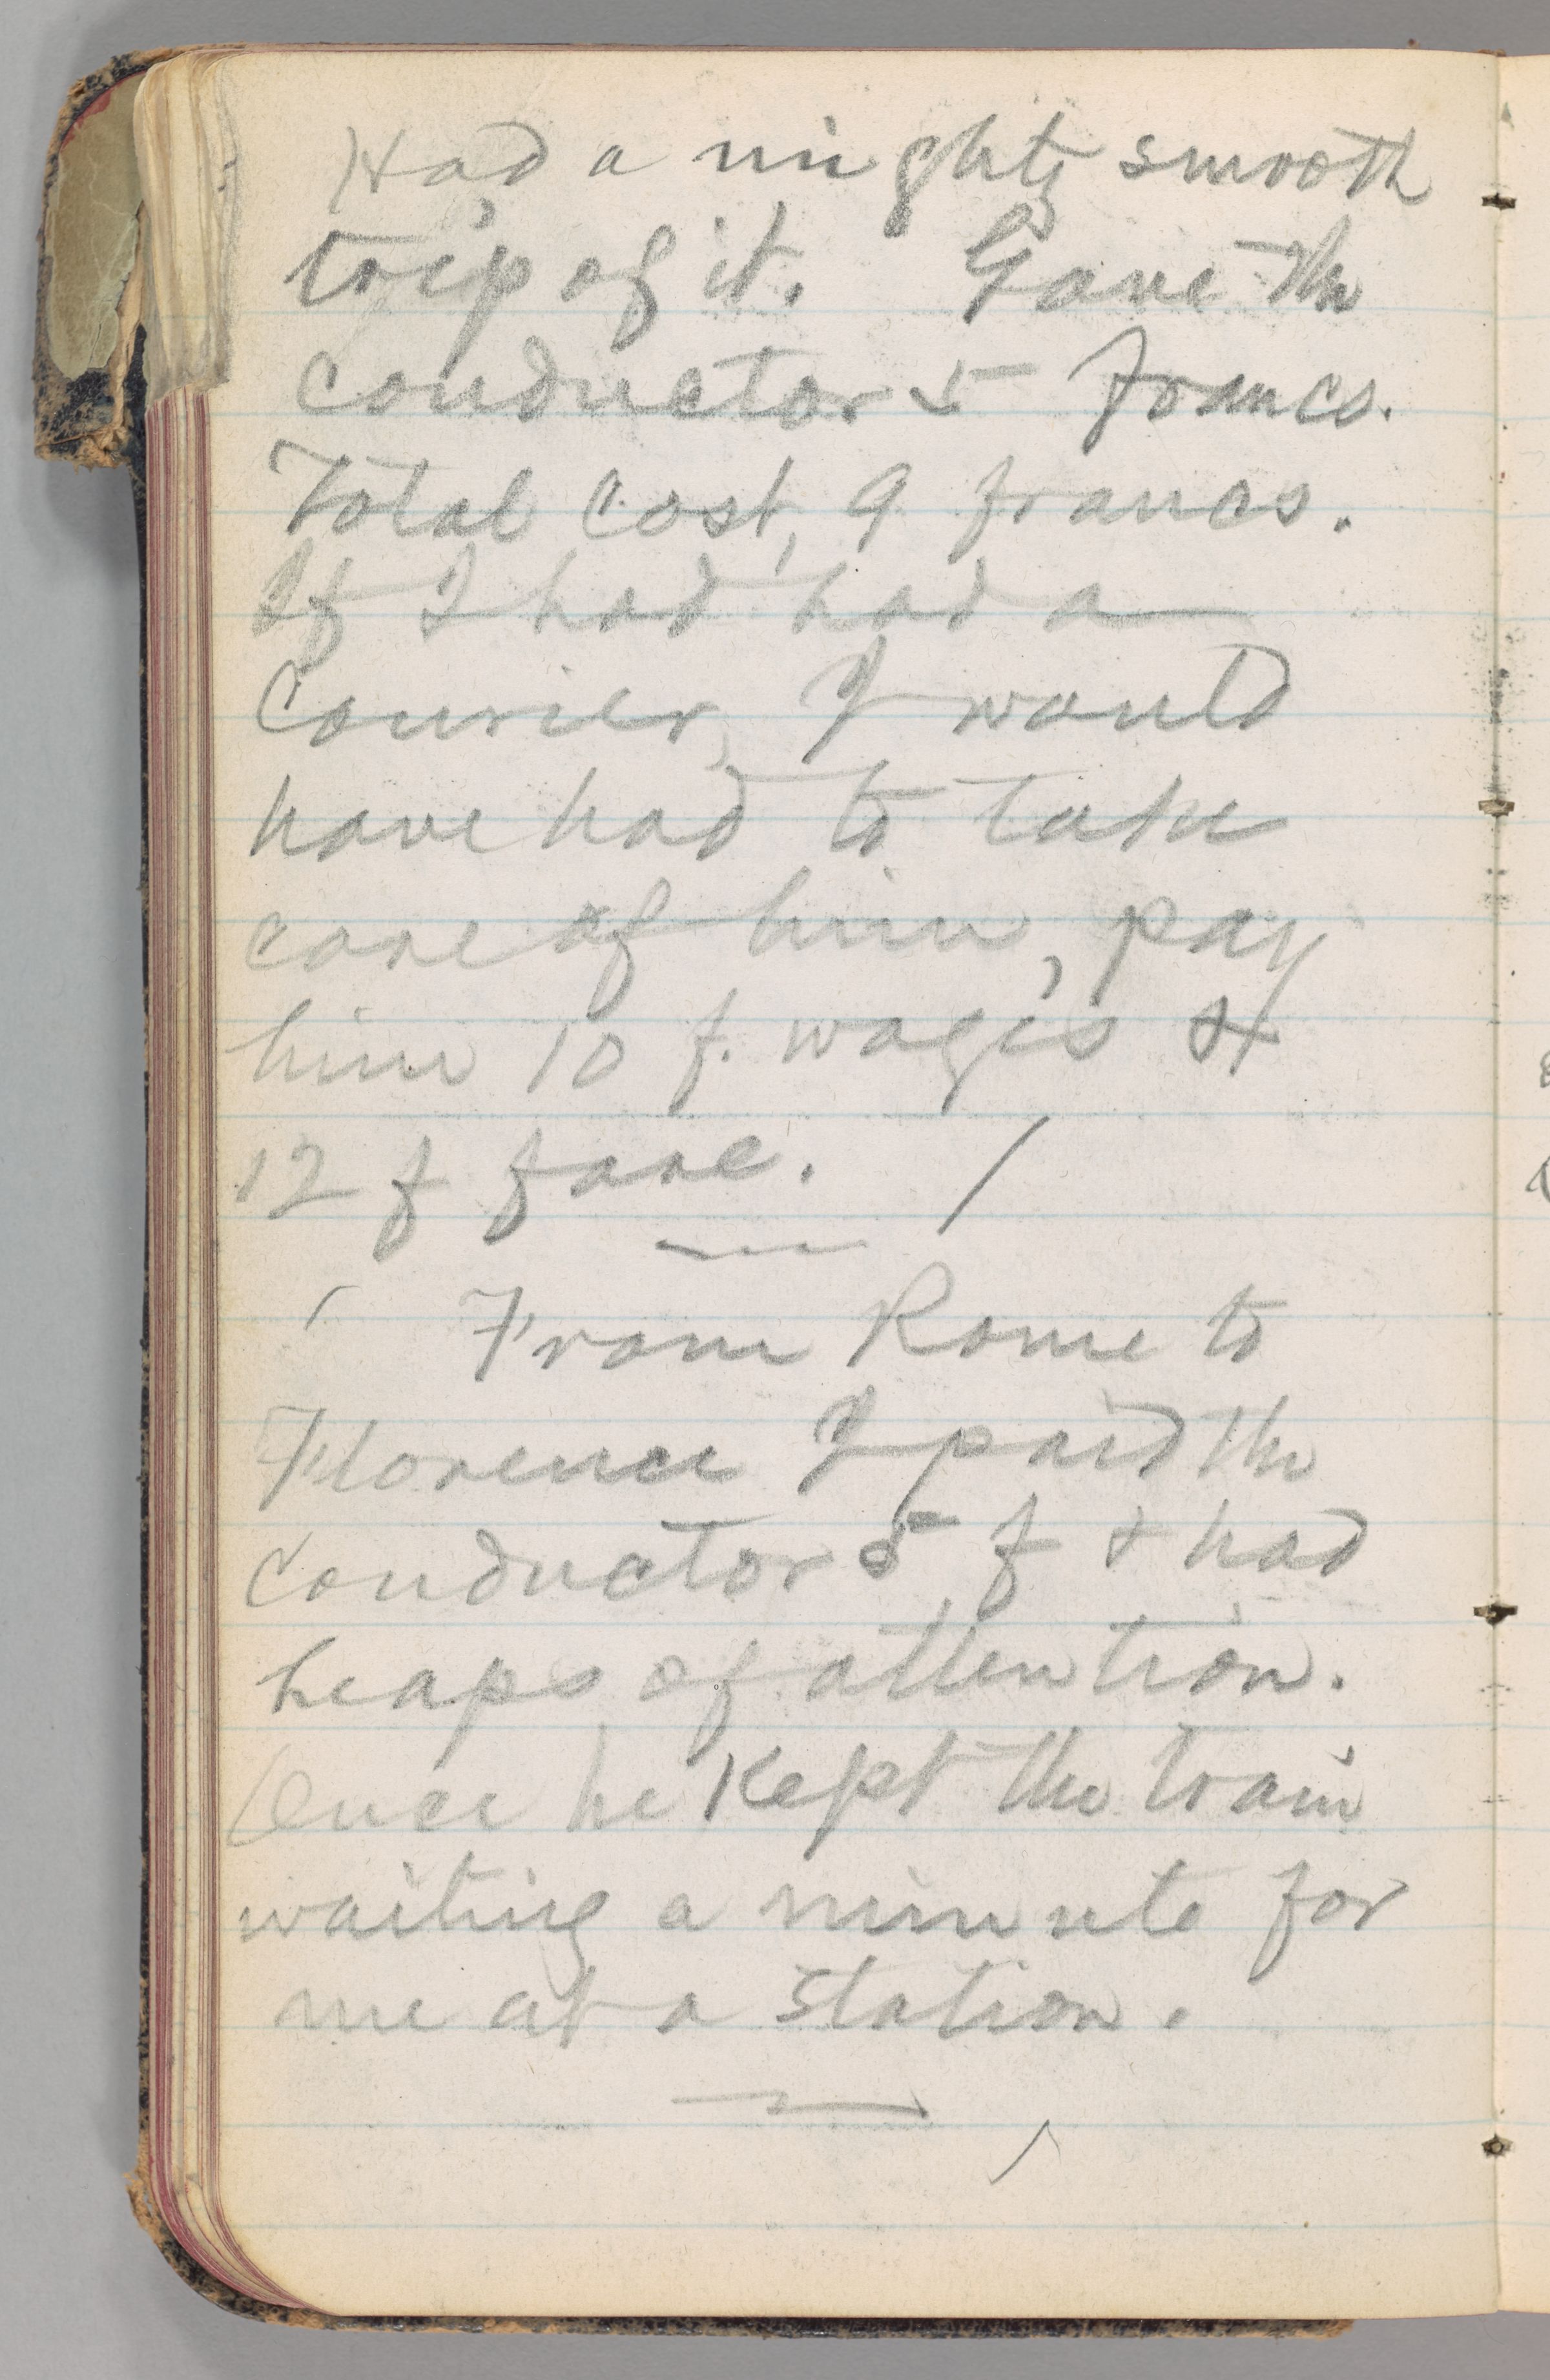 Had a mighty smooth
trip of it. Gave the
conductor 5 francs.
Total cost, 9 francs.
If I had had a
Courier, I would
have had to take
care of him, pay
him 10 f. wages &
12 f fare. /
From Rome to
Florence I paid the
conductor 5 f & had
heaps of attention.
Once he kept the train
waiting a minute for
me at a station.